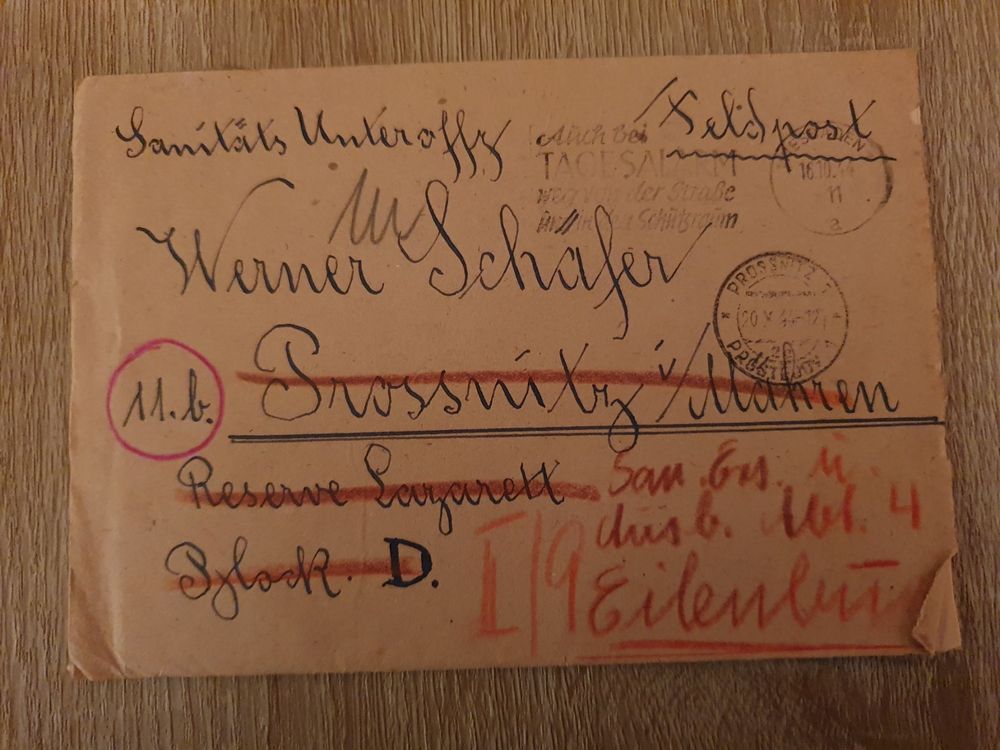 Sanitäts Unteroffz
Feldpost
Auch bei
TAGESALARM
weg von der Straße
Schutzraum
16.10.44
11
a
Werner Schäfer
PROSSNITZ 1
20.X.44-12
PROSTĚJOV 1
11.b.
Prossnitz i/Mähren
Reserve Lazarett
Block. D.
San. Ers. u.
Ausb. Abt. 4
I/9 Eilenburg